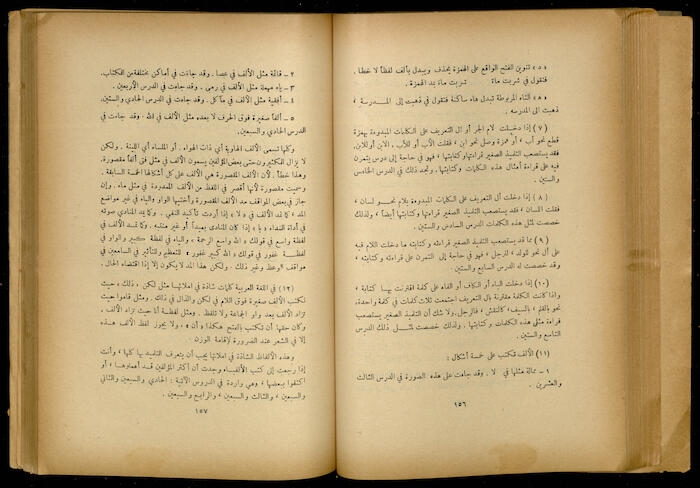 « ٥ » تنوين الفتح الواقع على الهمزة يحذف ويبدل بألف لفظاً لا خطا .
فتقول في شربت ماءً شربت ما بمد الهمزة .
« ٨ » التاء المربوطة تبدل هاء ساكنة فتقول في ذهبت إلى المدرسة ،
ذهبت الى المدرسه .
(٧) إذا دخلت لام الجر أو ال التعريف على الكلمات المبدوءة بهمزة
قطع نحو أب ، أو همزة وصل نحو ابن ، فقلت الأب أو للأب ، الابن أو للابن ،
فقد يستصعب التلميذ الصغير قراءتها وكتابتها ، فهو في حاجة إلى درس يتمرن
فيه على قراءة أمثال هذه الكلمات ، وتجد ذلك في الدرس الخامس
والستين .
(٨) إذا دخلت أل التعريف على الكلمات المبدوءة بلام نحو لسان ،
فقلت اللسان ، فقد يستصعب التلميذ الصغير قراءتها وكتابتها أيضاً ، ولذلك
خصصت لمثل هذه الكلمات الدرس السادس والستين .
(٩) مما قد يستصعب التلميذ الصغير قراءته وكتابته ما دخلت اللام فيه
على أل نحو للولد ، للرجل ، فهو في حاجة إلى التمرن على قراءته وكتابته ،
وقد خصصت له الدرس السابع والستين .
(١٠) إذا دخلت الباء أو الكاف أو الفاء على كلمة اقترنت بها كتابة ،
واذا كانت الكلمة مقترنة بال التعريف اجتمعت ثلاث كلمات في كلمة واحدة ،
نحو بالقلم ، بالسيف ، كالنقش ، فالرجل ، ولا شك أن التلميذ الصغير يستصعب
قراءة مثل هذه الكلمات وكتابتها . ولذلك خصصت لمثل ذلك الدرس
التاسع والستين .
(١١) الألف تكتب على خمسة أشكال :
١ – ممالة مثلها في لا . وقد جاءت على هذه الصورة في الدرس الثالث
والعشرين .
١٥٦
٢ – قائمة مثل الألف في عصا . وقد جاءت في أماكن مختلفة من الكتاب .
٣ – ياء مهملة مثل الألف في رمى . وقد جاءت في الدرس الأربعين .
٤ – أفقية مثل الألف في مآكل . وقد جاءت في الدرس الحادي والستين .
٥ – ألفاً صغيرة فوق الحرف لا بعده مثل الألف في الله . وقد جاءت في
الدرس الحادي والسبعين .
وكلها تسمى الألف الهاوية أي ذات الهواء . أو الملساء أي اللينة . ولكن
لا يزال الكثيرون حتى بعض المؤلفين يسمون الألف في مثل فتى ألفاً مقصورة .
وهذا خطأ . لأن الألف المقصورة هي الألف على كل أشكالها الخمسة السابقة .
وسميت مقصورة لأنها أقصر في اللفظ من الألف الممدودة في مثل ماء . وإن
جاز في بعض المواقف مد الألف المقصورة وأختيها الواو والياء في غير مواضع
المد ، كما تمد الألف في « لا » إذا أردت تأكيد النفي . وكما يمد المنادي صوته
في أداة النداء « يا » إذا كان المنادى بعيداً أو غير منتبه . وكما تمد الألف في
لفظة واسع في قولك « الله واسع الرحمة » ، والياء في لفظة كبير والواو في
لفظة غفور في قولك « الله كبير غفور » للتعظيم والتأثير في السامعين في
مواقف الوعظ وغير ذلك . ولكن هذا المد لا يكون إلا إذا اقتضاه الحال .
(١٢) في اللغة العربية كلمات شاذة في املائها مثل لكن ، ذلك ، حيث
تكتب الألف صغيرة فوق اللام في لكن والذال في ذلك . ومثل قاموا حيث
تزاد الألف بعد واو الجماعة ولا تلفظ . ومثل لفظة أنا حيث تزاد الألف .
وكان حقها أن تكتب بالفتح هكذا « أنَ » ، ولا يجوز لفظ الألف هذه
إلا في الشعر عند الضرورة لإقامة الوزن .
وهذه الألفاظ الشاذة في املائها يجب أن يتعرف التلميذ بها كلها ، وأنت
إذا رجعت إلى كتب الألفباء وجدت أن أكثر المؤلفين قد أهملوها ، أو
اكتفوا ببعضها ، وهي واردة في الدروس الآتية : الحادي والسبعين والثاني
والسبعين ، والثالث والسبعين ، والرابع والسبعين .
١٥٧